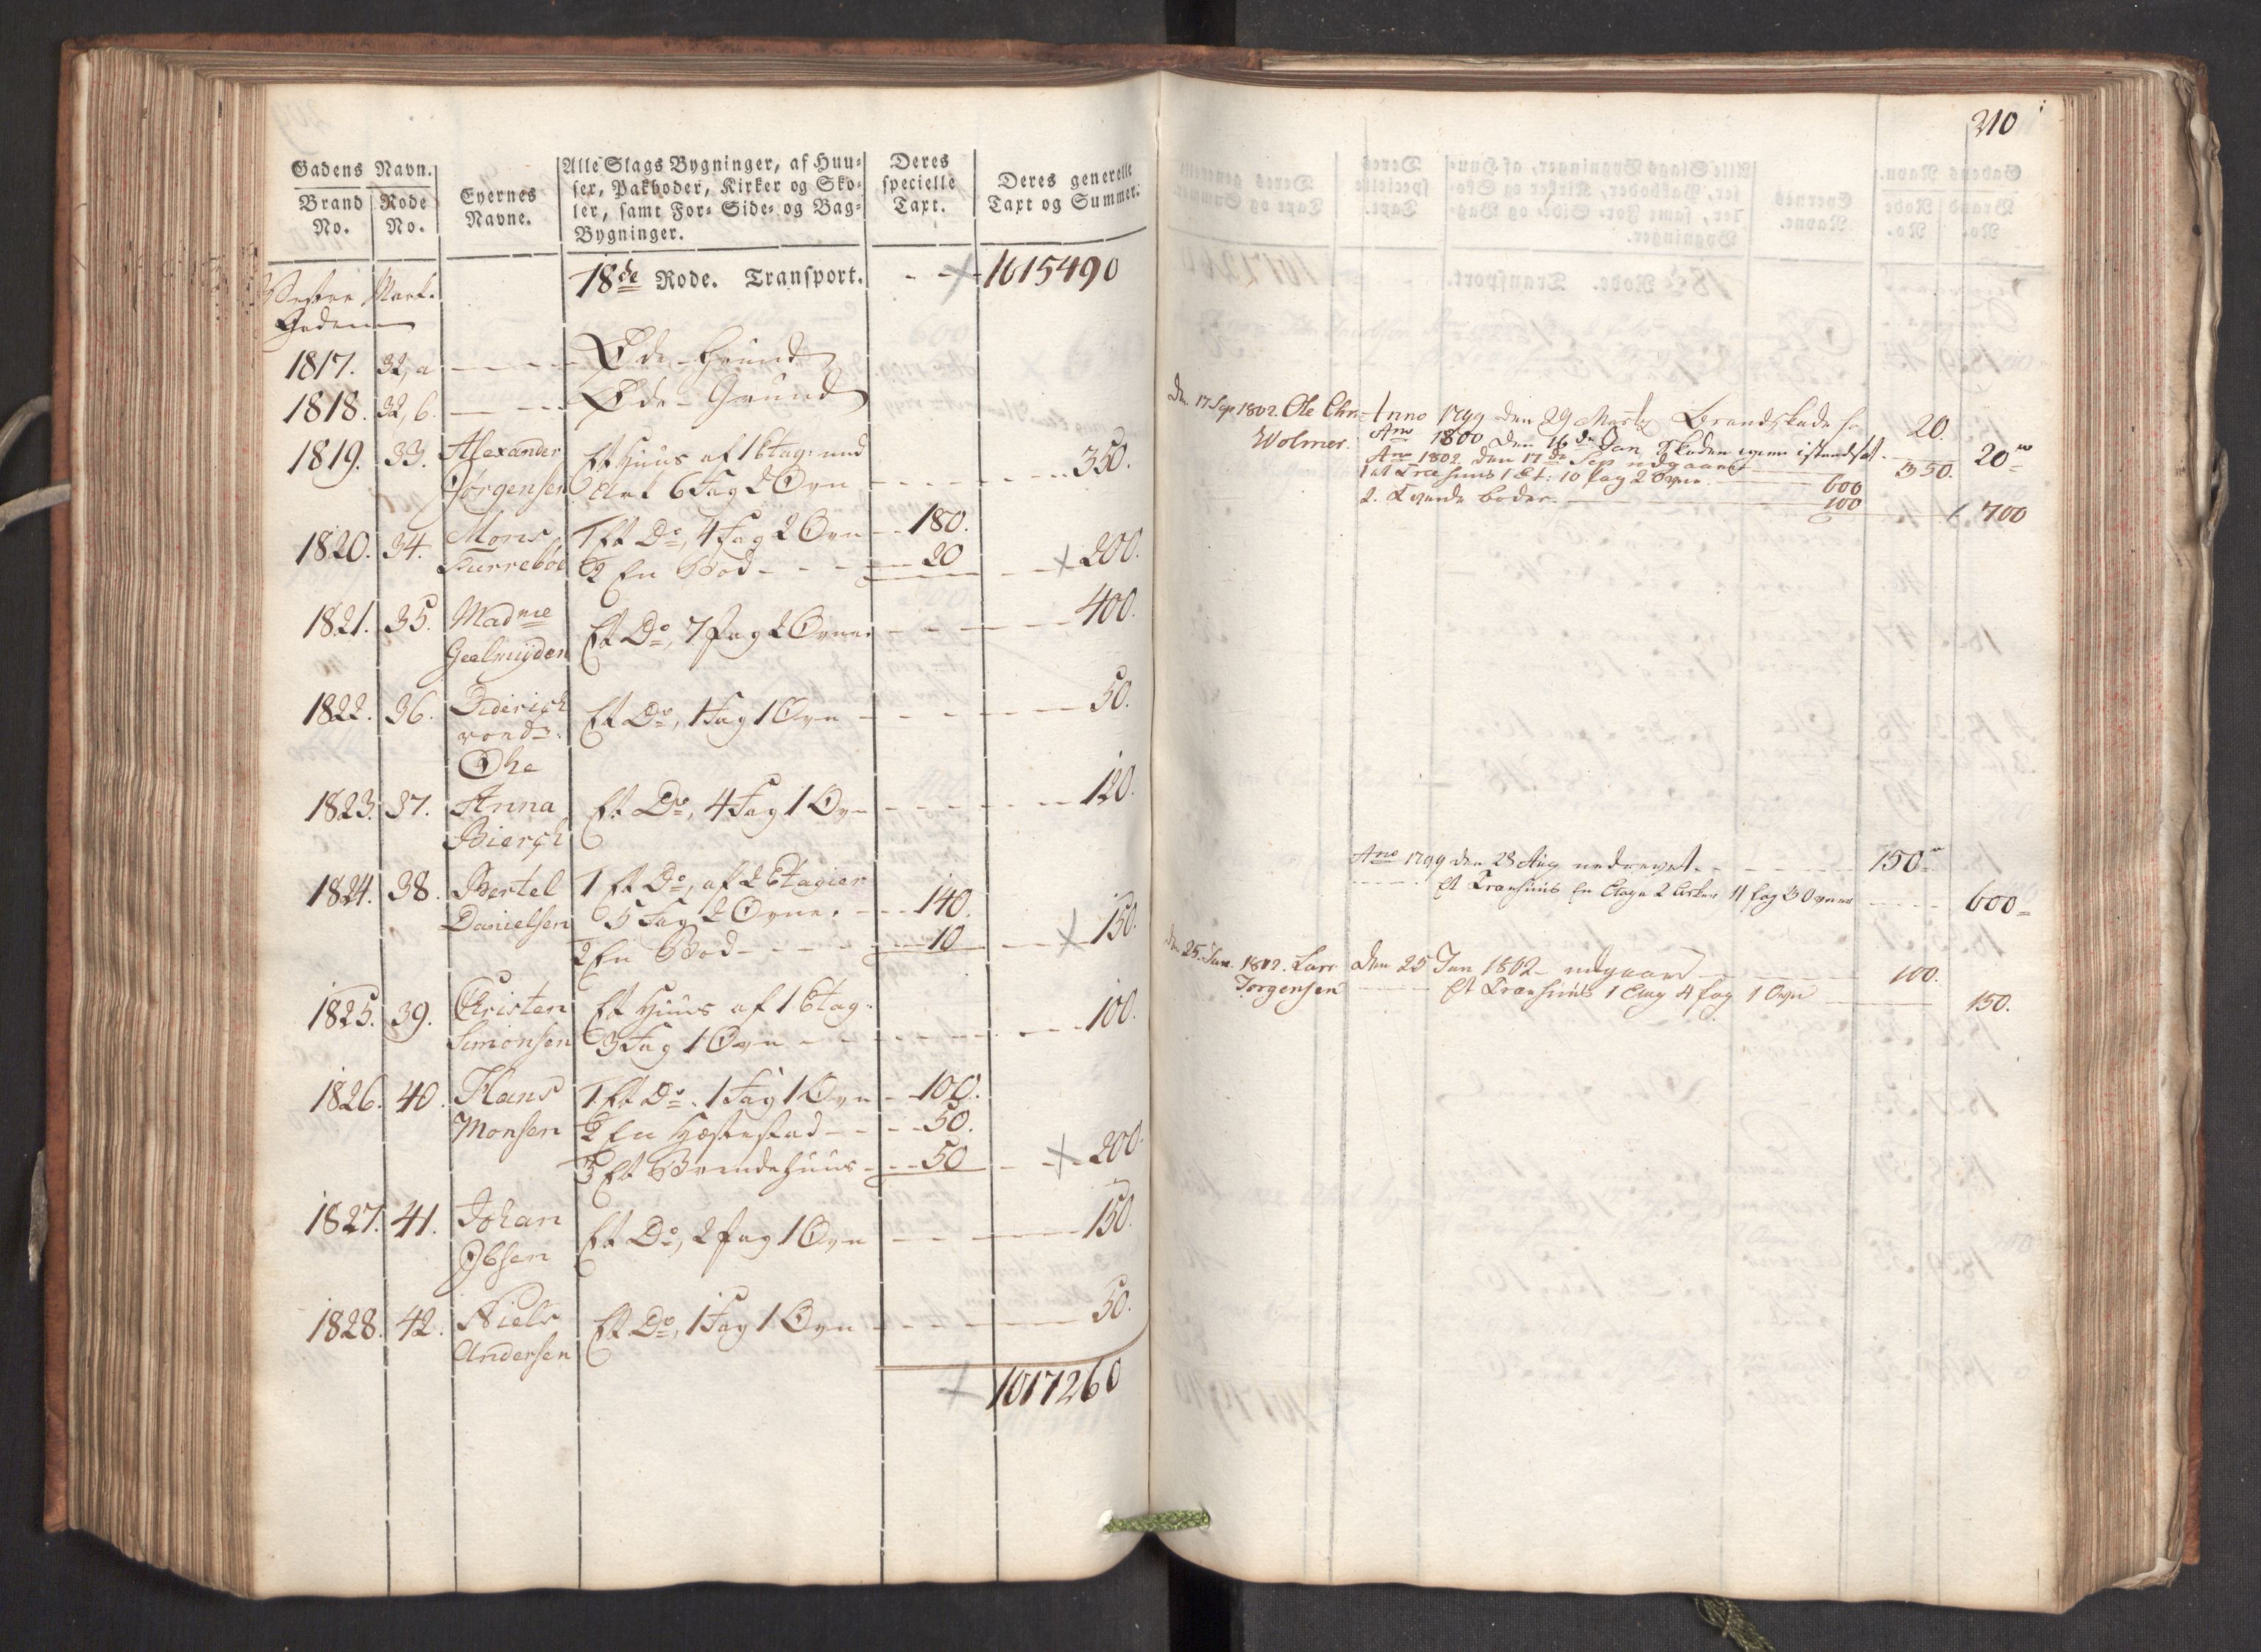 Gadens Navn.
Brand No.
Rode No.
Eyernes Navne.
Alle Slags Bygninger, af Huu-
ser, Pakboder, Kirker og Sko-
ler, samt For- Side- og Bag-
Bygninger.
Deres specielle Taxt.
Deres generelle
Taxt og Summer.
18de Rode. Transport. - - 1015490
Mark
Gaden
1817. 32, a Øde-Grund
1818. 32, b. Øde-Grund
1819. 33. Alexander Et Huus af 1 Etag: med
Jørgensen Ark 6 Fag 2 Ovn - - - 350.
1820. 34. Mons 1 Et Do, 4 Fag 2 Ovn - 180.
Turrebøe 2 En Bod - - - 20 - 200.
1821. 35. Madme
Geelmuyden Et Do, 7 Fag 2 Ovne - - - 400.
1822. 36. Diderich Et Do, 1 Fag 1 Ovn - - - 50.
vond
Ohe
1823. 37. Anna Et Do, 4 Fag 1 Ovn - - - 120.
Biersch
1824. 38. Bertel 1 Et Do, af 2 Etagier
Danielsen 5 Fag 2 Ovne. - - 140.
2 En Bod - - - 10 - 150.
1825. 39. Christen Et Huus af 1 Etag:
Simonsen 3 Fag 1 Ovn - - - 100.
1826. 40. Hans 1 Et Do. 1 Fag 1 Ovn - 100.
Monsen 2 En Hestestad - - 50.
3 Et Brendehuus - - 50 - 200.
1827. 41. Johan
Ibsen Et Do, 2 Fag 1 Ovn - - - 150.
1828. 42. Niels
Andersen Et Do, 1 Fag 1 Ovn - - - 50.
1017260
210
Den 17 Sep 1802. Ole Chri- Anno 1799 den 29 Brandskade 20.
Wolmer. Ano 1800 den 16de Jan Skaden igien istandsat. 20
Ano 1802 den 17de Sep udgaaer 350.
1 et Træhuus 1 Et: 10 fag 2 Ovne 600
2. Tvende boder 100 700
Ano 1799 den 28 Aug nedrevet. - - - 150
Et Træehuus En Etage 2 Arker 11 fag 3 Ovne - - - 600
den 25. Jan. 1802. Lars Den 25 Jan 1802 udgaaer 100.
Jørgensen Et Træehuus 1 Etag 4 fag 1 Ovn 150.